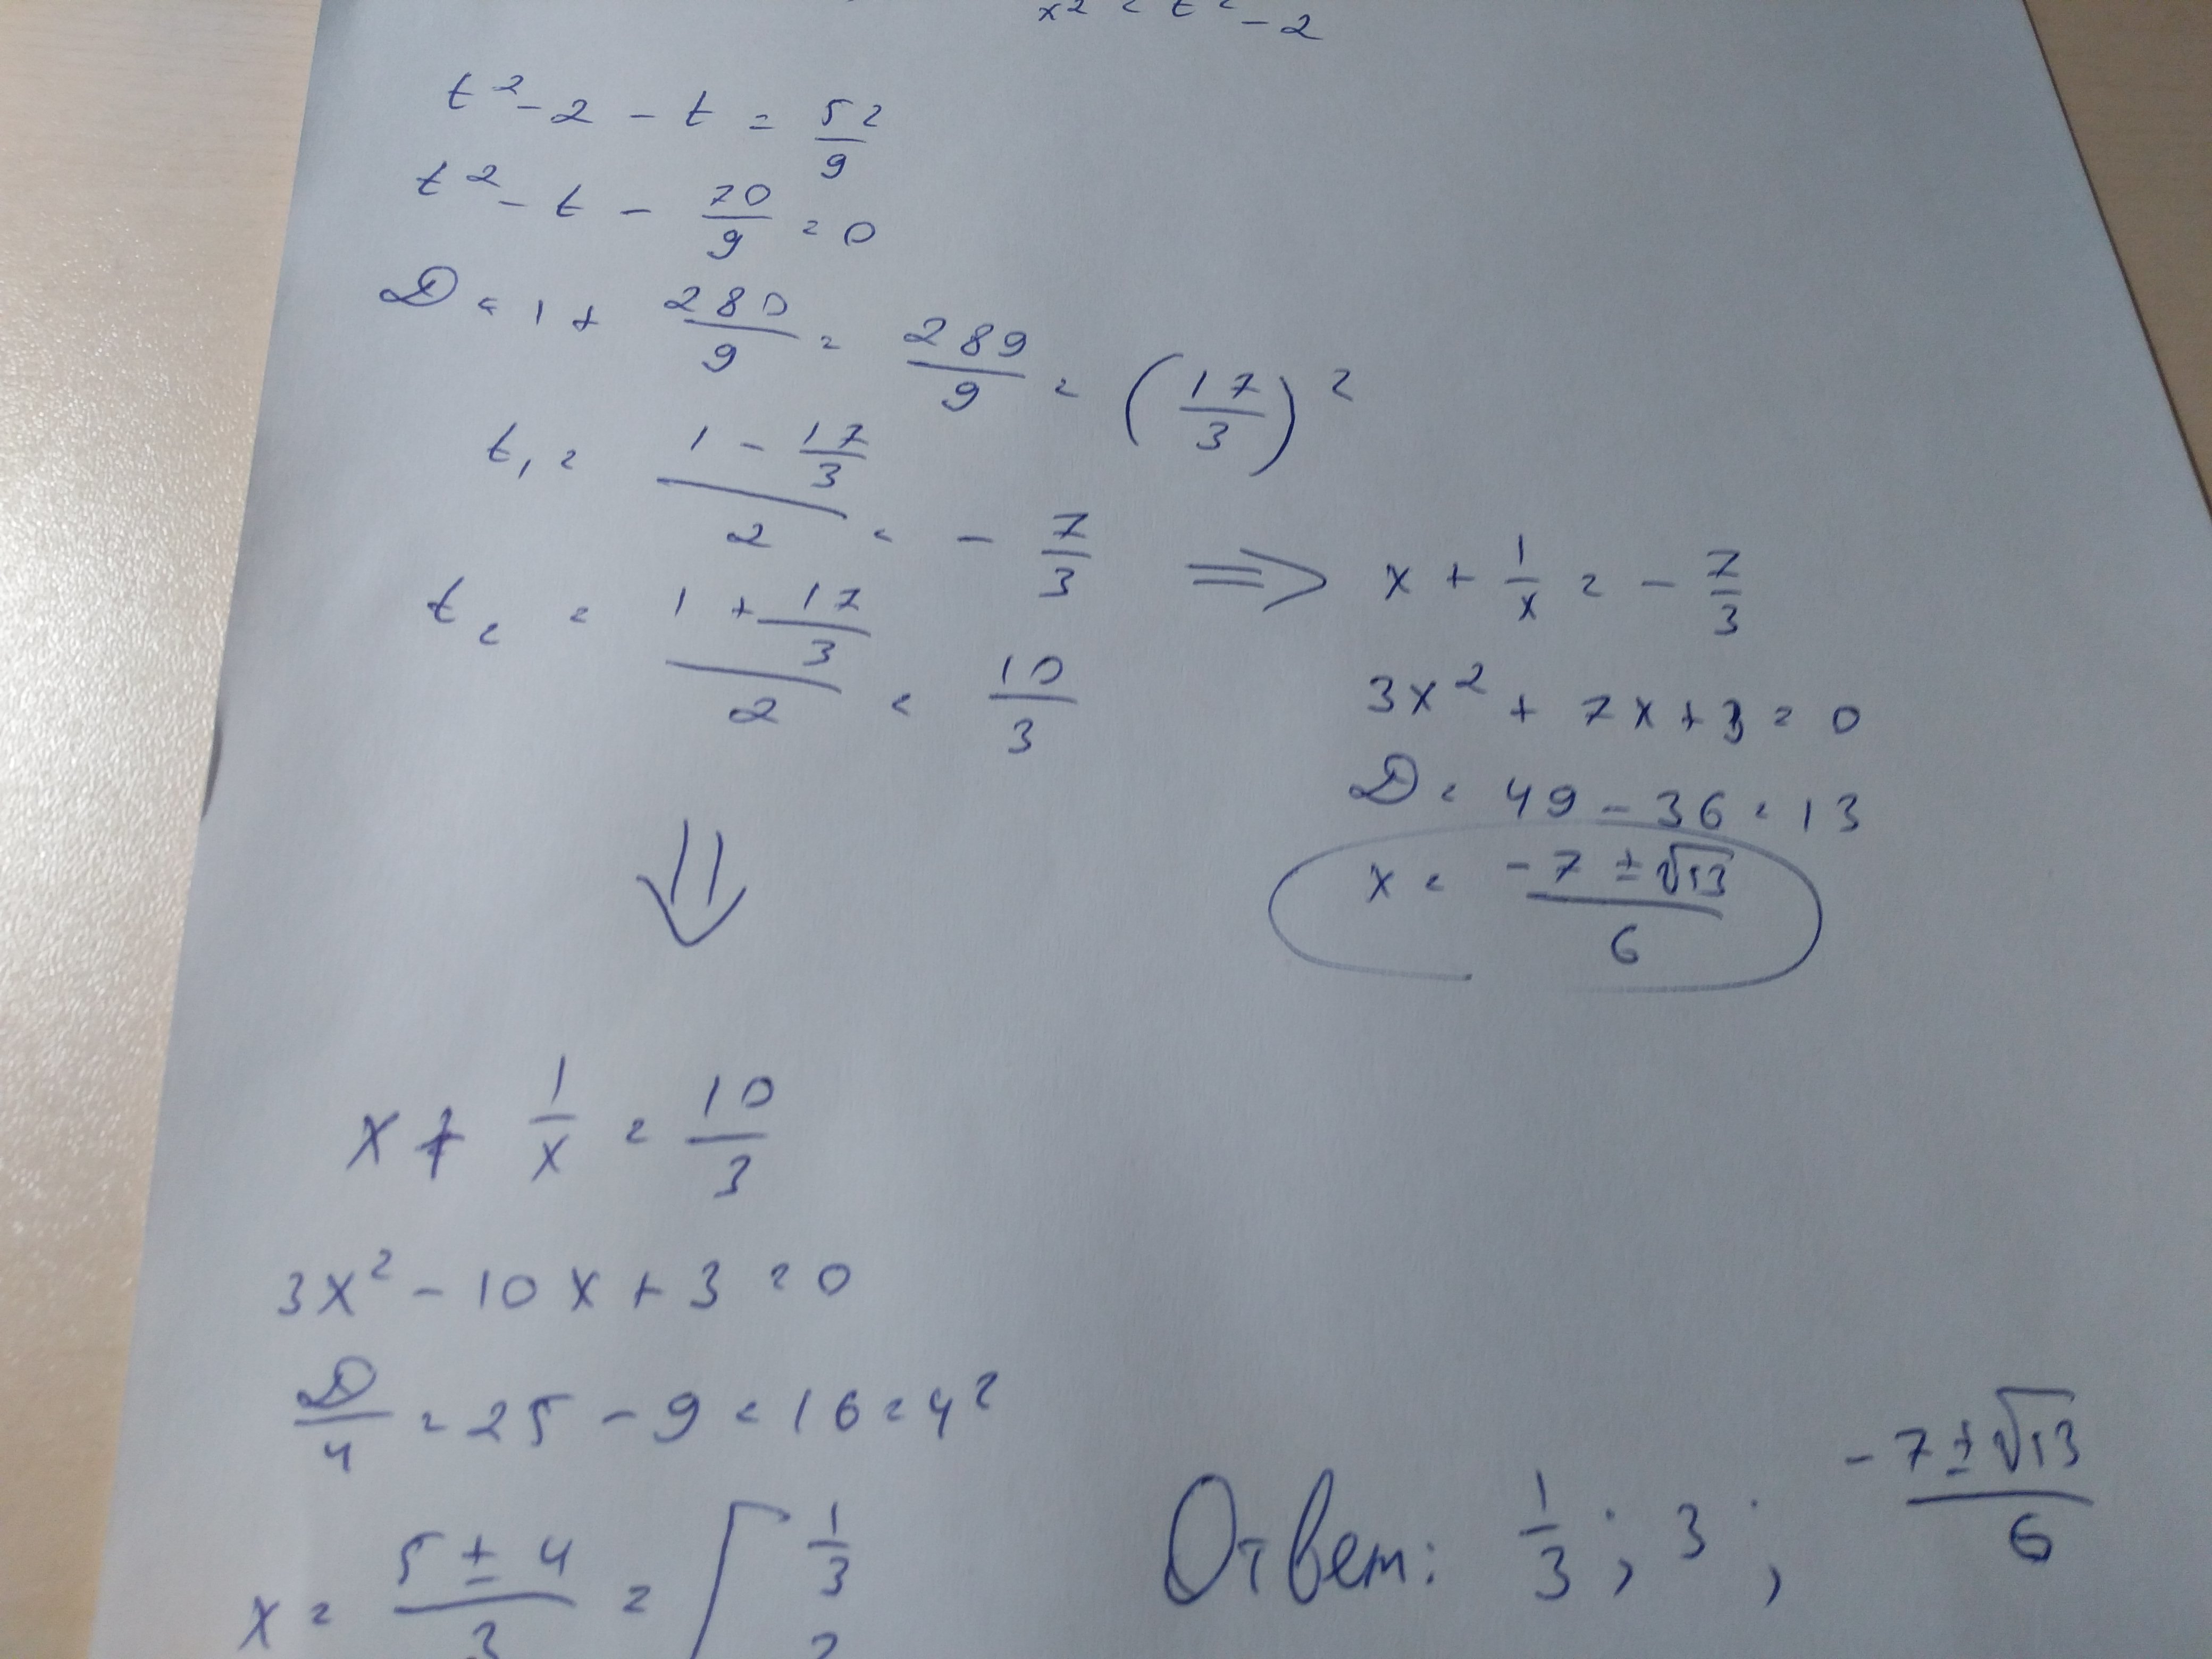 x² = t² - 2
t² - 2 - t = 52/9
t² - t - 70/9 = 0
D = 1 + 280/9 = 289/9 = (17/3)²
t₁ = (1 - 17/3)/2 = - 7/3 ⇒ x + 1/x = - 7/3
t₂ = (1 + 17/3)/2 = 10/3
3x² + 7x + 3 = 0
D = 49 - 36 = 13
x = (-7 ± √13)/6
⇓
x + 1/x = 10/3
3x² - 10x + 3 = 0
D/4 = 25 - 9 = 16 = 4²
x = (5 ± 4)/3 = [ 1/3
3
Ответ: 1/3; 3; (-7 ± √13)/6